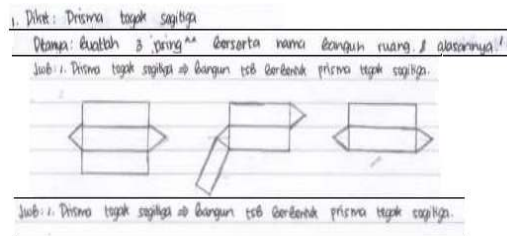 1. Diket: Prisma tegak segitiga
Ditanya: Buatlah 3 jaring^^ berserta nama bangun ruang & alasannya!
Jwb: 1. Prisma tegak segitiga ⇒ Bangun tsb berbentuk prisma tegak segitiga.
Jwb: 1. Prisma tegak segitiga ⇒ Bangun tsb berbentuk prisma tegak segitiga.